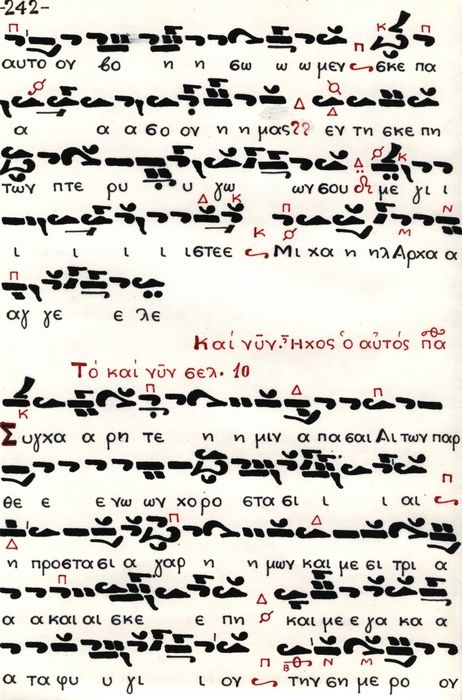 -242-
αυτο ου βο η η σω ω ω μεν σκε πα
α α α σο ου η η μας?? εν τη σκε πη
των πτε ρυ υ γω ων σου με γι ι
ι ι ι ι ιστεε Μι χα η ηλ Αρχα α
αγ γε ε λε
Καί νῦν. Ἦχος ὁ αὐτός πα
Τό καί νῦν σελ. 10
Συγχα α ρη τε η η μιν α πα σαι Αι των παρ
θε ε ε νω ων χορο στα σι ι ι αι
η προστα σι α γαρ η η μων και με σι τρι α
α α και αι σκε ε πη και με ε γα κα α
α τα φυ υ γι ι ον την ση με ρο ον